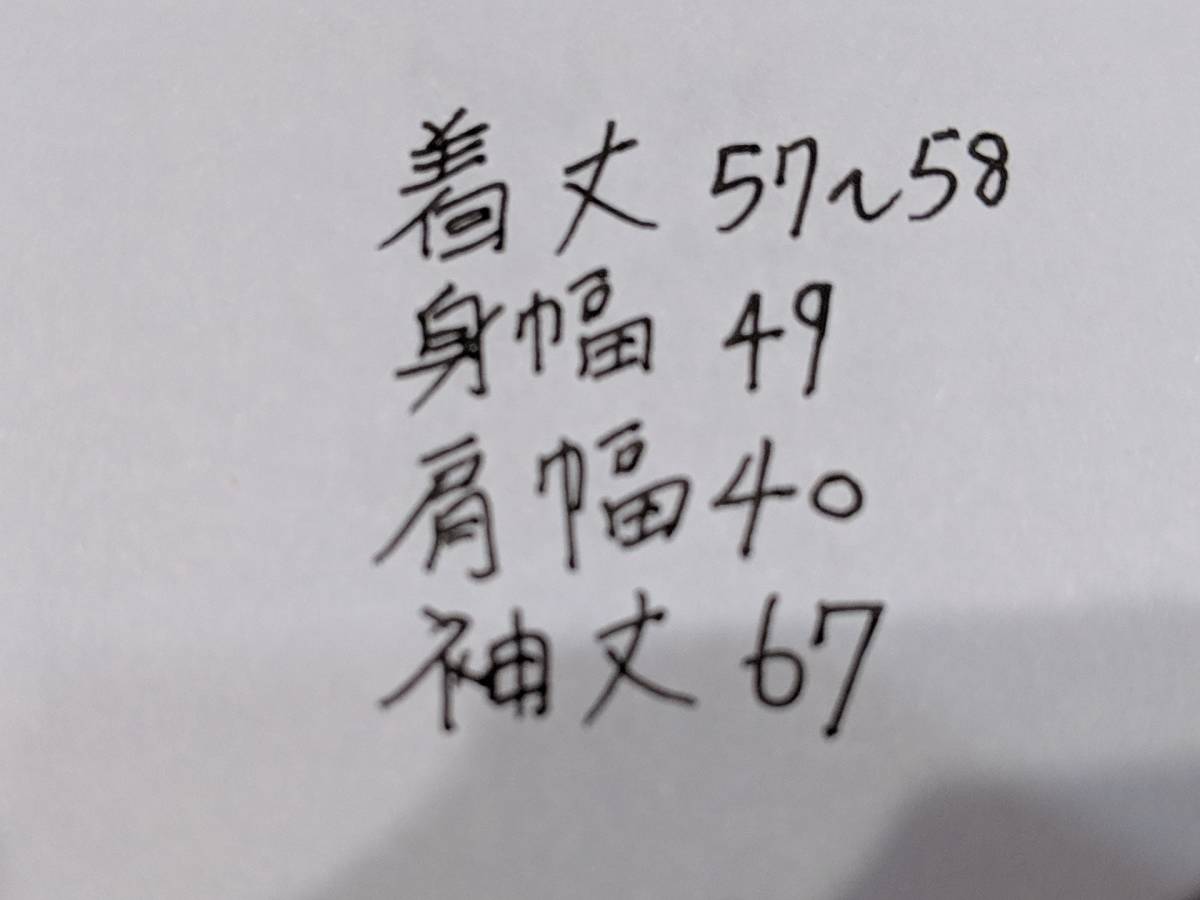 着丈 57~58
身幅 49
肩幅 40
袖丈 67